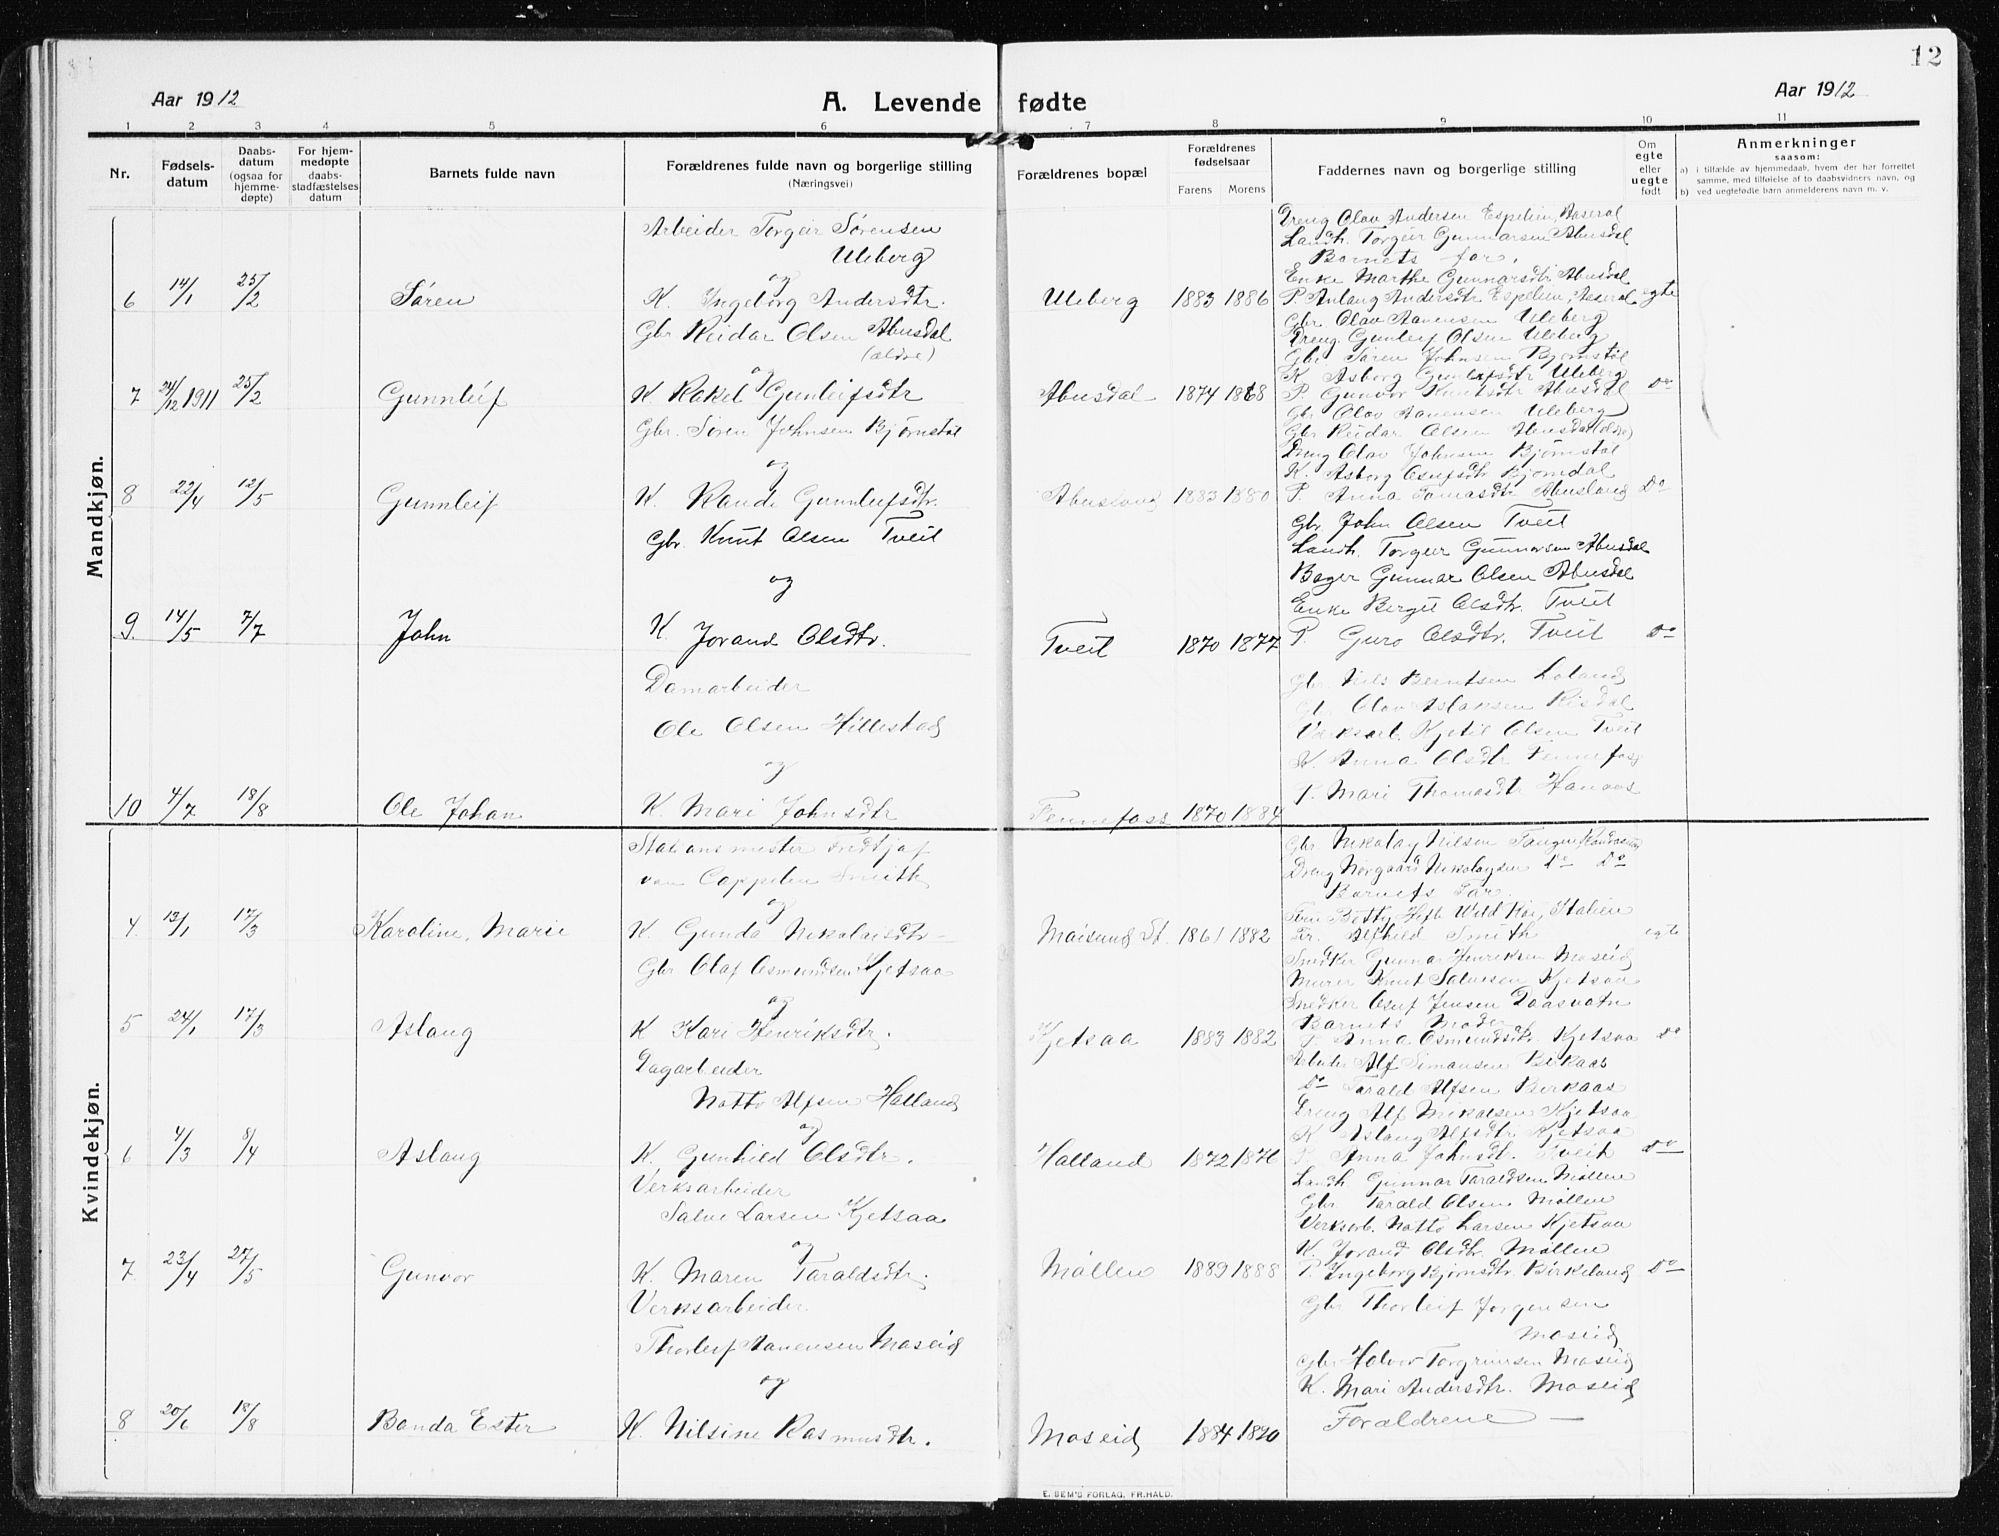 12
Aar 1912
A. Levende fødte
Aar 1912
1 2 3 4 5 6 7 8 9 10 11
Nr.
Fødsels-
datum
Daabs-
datum
(ogsaa for
hjemme-
døpte)
For hjem-
medøpte
daabs-
stadfæstelses
datum
Barnets fulde navn
Forældrenes fulde navn og borgerlige stilling
(Næringsvei)
Forældrenes bopæl
Forældrenes
fødselsaar
Farens Morens
Faddernes navn og borgerlige stilling
Om
egte
eller
uegte
født
Anmerkninger
saasom:
a) i tilfælde av hjemmedaab, hvem der har forrettet
samme, med tilføielse af to daabsvidners navn, og
b) ved uegtefødte barn anmelderens navn m. v.
Mandkjøn.
Arbeider Torgeir Sørensen
Uleberg
og
6 14/1 25/2 Søren K. Ingeborg Andersdtr. Uleberg 1883 1886 egte
Dreng Olav Andersen Espelien, Aaseral
Landh. Torgeir Gunnarsen Abusdal
Barnets far.
Enke Marthe Gunnarsdtr Abusdal
P. Anlaug Andersdtr Espelien, Aaseral
Gbr Reidar Olsen Abusdal
(ældre)
og
7 24/12 1911 25/2 Gunnleif K Rakel Gunleifsdtr Abusdal 1874 1868 Do
Gbr. Olav Aanensen Uleberg
Dreng. Gunleif Olsen Uleberg
Gbr Søren Johnsen Bjørnstøl
K. Asborg Gunleifsdtr Uleberg
P. Gunvor Knutsdtr Abusdal
Gbr. Søren Johnsen Bjørnstøl
og
8 22/4 12/5 Gunnleif K. Rande Gunnleifsdtr. Abusland 1883 1880 Do
Gbr Olav Aanensen Uleberg
Gbr Reidar Olsen Abusdal (ældre)
Dreng Olav Johnsen Bjørnstøl
K. Asborg Osufsdtr Bjørndal
P. Anna Tomasdtr Abusland
Gbr. Knut Olsen Tveit
og
9 14/5 7/7 John K Jorand Olsdtr. Tveit 1870 1877 Do
Gbr. John Olsen Tveit
Landh. Torgeir Gunnarsen Abusdal
Bager Gunnar Olsen Abusdal
Enke Birgit Olsdtr. Tveit
P. Guro Olsdtr. Tveit
Damarbeider
Ole Olsen Hillestad
og
10 4/7 18/8 Ole Johan K. Mari Johnsdtr Fennefoss 1870 1884
Gbr. Niels Berntsen Loland
Olav Aslaksen Risdal
Verksarb. Kjetil Olsen Tveit
K. Anna Olsdtr Fennefoss
P. Mari Thomasdtr Hanaas
Kvindekjøn.
Stationsmester Fredtjof
von Cappelen Smith
og
4 13/1 17/3 Karoline, Marie K. Gunda Nikolaisdtr Moisund St. 1861 1882 egte
Gbr. Nikolay Nilsen Tangen
Dreng Nørgaard Nikolaysen Do Do
Barnets Far.
Italien
Fr. Alfhild Smith
Gbr Olaf Osmundsen Kjetsaa
og
5 24/1 17/3 Aslaug K Kari Henriksdtr. Kjetsaa 1883 1882 Do
Snedker Gunnar Henriksen Moseid
Murer Knut Salvesen Kjetsaa
Snedker Osuf Jensen Daasvatn
Barnets Moder
P. Anna Osmundsdtr Kjetsaa
Dagarbeider
Notto Alfsen Halland
og
6 4/3 8/4 Aslaug K. Gunhild Olsdtr. Halland 1872 1876 Do
Arbeider Alf Simonsen Birkaas
Do Tarald Alfsen Birkaas
Dreng Alf Mikalsen Kjetsaa
K. Aslaug Alfsdtr Kjetsaa
P. Anna Johnsdt. Tveit
Verksarbeider
Salve Larsen Kjetsaa
og
7 23/4 27/5 Gunvor K. Maren Taraldsdtr. Møllen 1889 1888 Do
Landh Gunnar Taraldsen Møllen
Gbr Tarald Olsen Møllen
Verksarb. Notto Larsen Kjetsaa
K. Jorand Olsdtr. Møllen
P. Ingeborg Bjørnsdtr. Birkeland
Verksarbeider
Thorleif Aanensen Moseid
og
8 20/6 18/8 Banda Ester K. Nilsine Rasmusdtr. Moseid 1884 1890
Gbr Thorleif Jørgensen
Moseid
Gbr Halvor Torgrimsen Moseid
K. Mari Andersdtr. Moseid
Forældrene
E. SEM'S FORLAG, FR.HALD.